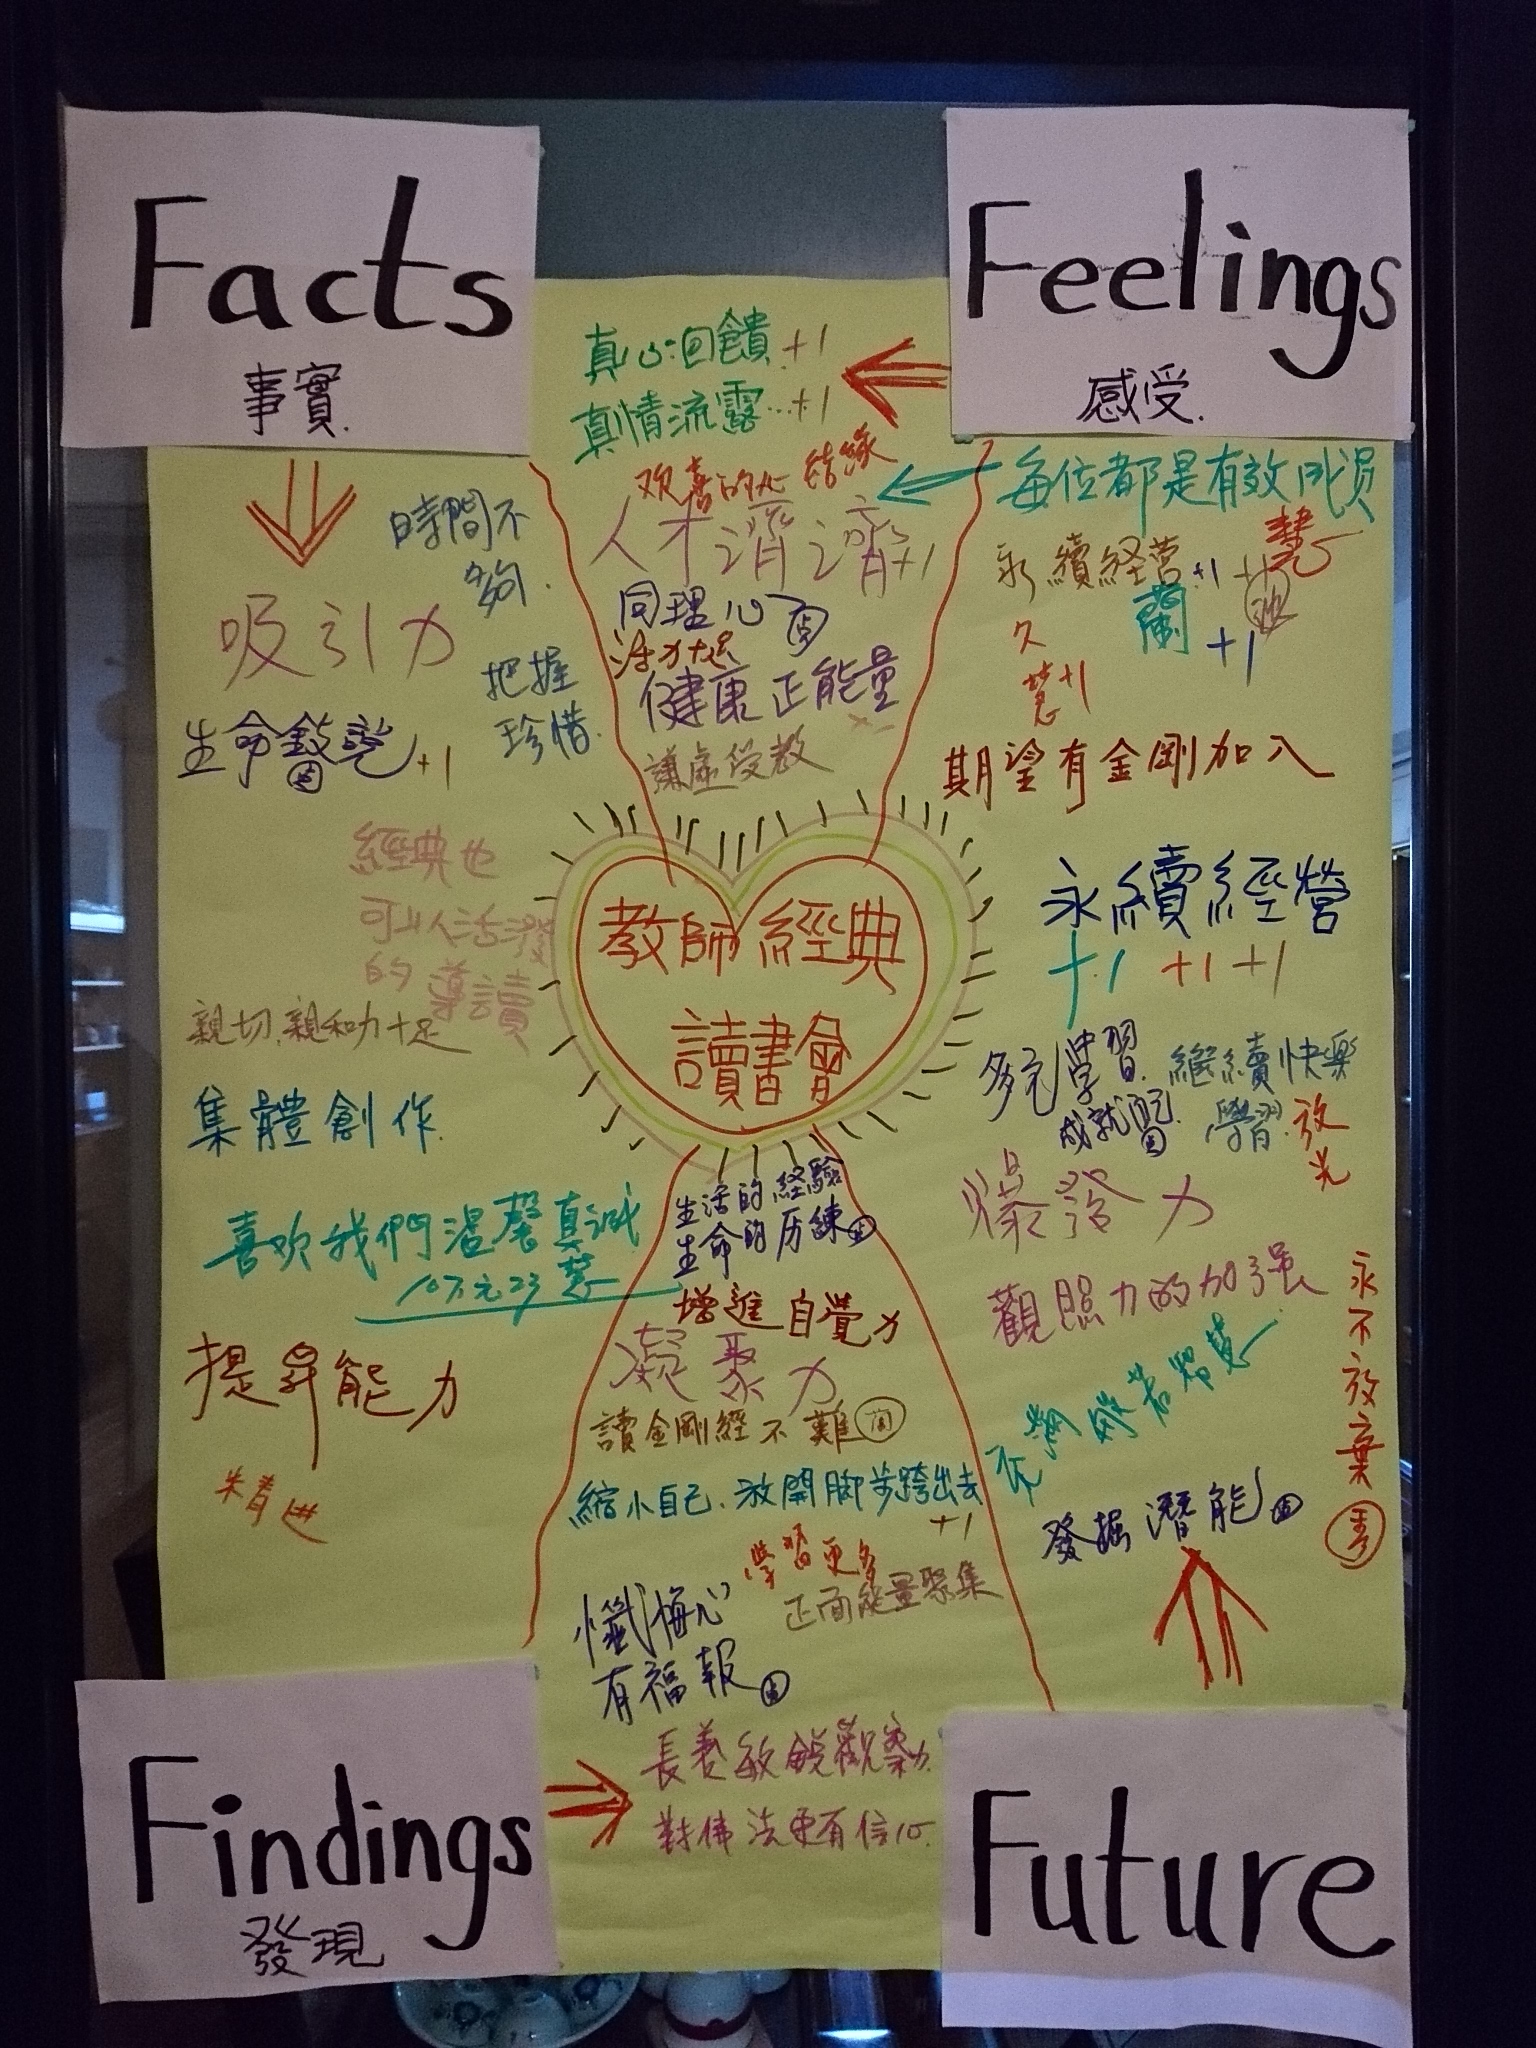 Facts
事實.
Feelings
感受.
真心回饋 +1
真情流露…+1
欢喜的心 結緣
人才濟濟+1
同理心
活力十足
健康正能量
謙虛受教
時間不
夠.
吸引力
把握
珍惜.
生命 +1
經典也
可以人活潑
的導讀
親切、親和力十足
集體創作.
喜欢我們溫馨真誠
提昇能力
精進
教師經典
讀書會
每位都是有效成员
永續経营 +1
蘭 +1
久
慧+1
期望有金剛加入
永續經營
+1 +1 +1
多元學習.
成就
繼續快樂
學習.
放
光
爆發力
觀照力的加强
般若智慧
永不放棄
發掘潛能
生活的経驗
生命的历練
增進自覺力
凝聚力
讀金剛經不難
縮小自己、放開脚步跨出去
+1
學習更多
正面能量聚集
懺悔心
有福報
長養敏銳觀察力.
對佛法更有信心.
Findings
發現
Future